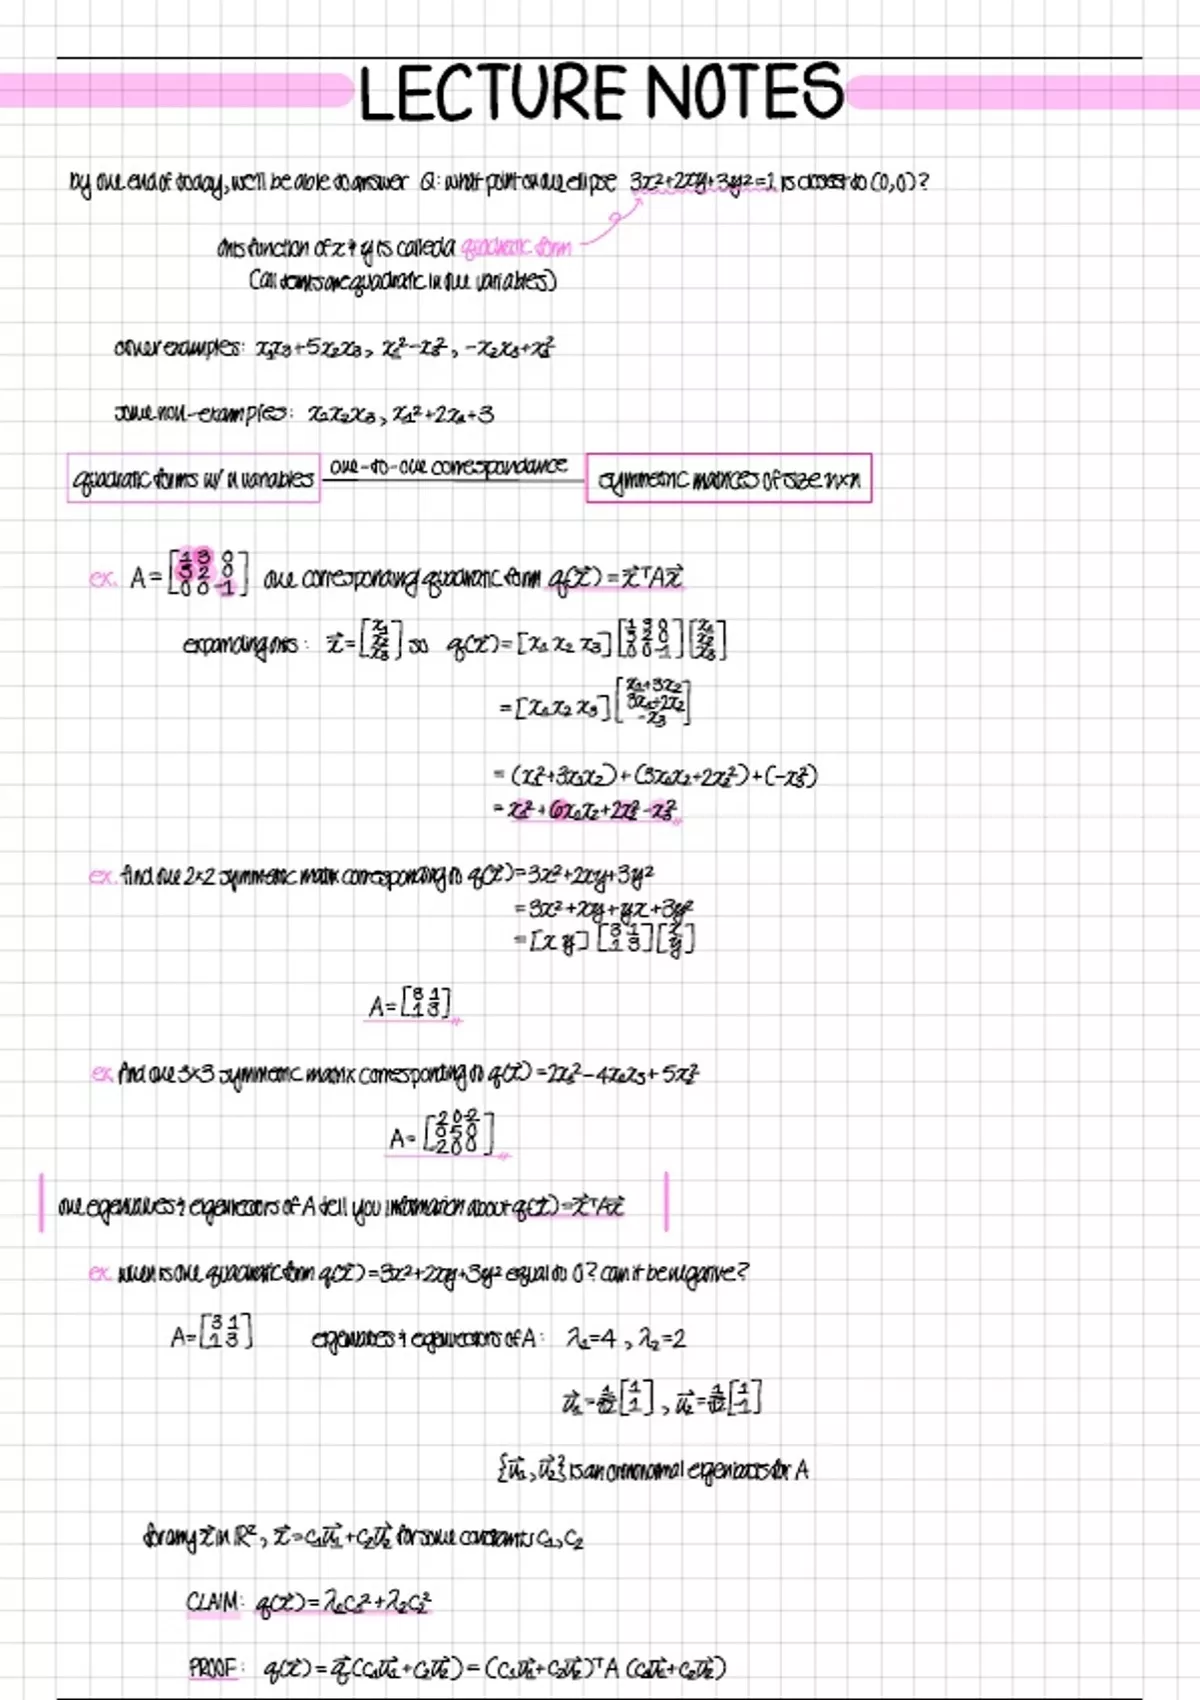 LECTURE NOTES
by the end of today, we'll be able to answer Q: what point on the ellipse 3x²+2xy+3y²=1 is closest to (0,0)?
this function of x & y is called a quadratic form
(all terms are quadratic in the variables)
other examples: x₁x₃+5x₂x₃, x₁²-x₃², -x₂x₃+x₃²
some non-examples: x₁x₂x₃, x₁²+2x₁+3
quadratic forms w/ n variables one-to-one correspondance symmetric matrices of size n×n
ex. A = [1 3 0; 3 2 0; 0 0 -1] the corresponding quadratic form q(x⃗) = x⃗ᵀAx⃗
expanding this: x⃗ = [x₁; x₂; x₃] so q(x⃗) = [x₁ x₂ x₃] [1 3 0; 3 2 0; 0 0 -1] [x₁; x₂; x₃]
= [x₁ x₂ x₃] [x₁+3x₂; 3x₁+2x₂; -x₃]
= (x₁²+3x₁x₂)+(3x₁x₂+2x₂²)+(-x₃²)
= x₁²+6x₁x₂+2x₂²-x₃²
ex. find the 2×2 symmetric matrix corresponding to q(x⃗)=3x²+2xy+3y²
=3x²+xy+yx+3y²
=[x y] [3 1; 1 3] [x; y]
A = [3 1; 1 3]
ex. find the 3×3 symmetric matrix corresponding to q(x⃗) =2x₁²-4x₁x₃+5x₂²
A = [2 0 -2; 0 5 0; -2 0 0]
the eigenvalues & eigenvectors of A tell you information about q(x⃗)=x⃗ᵀAx⃗
ex. when is the quadratic form q(x⃗)=3x²+2xy+3y² equal to 0? can it be negative?
A = [3 1; 1 3] eigenvalues & eigenvectors of A: λ₁=4, λ₂=2
u⃗₁ = 1/√2 [1; 1], u⃗₂ = 1/√2 [1; -1]
{u⃗₁, u⃗₂} is an orthonormal eigenbasis for A
for any x⃗ in ℝ², x⃗ = c₁u⃗₁+c₂u⃗₂ for some constants c₁, c₂
CLAIM: q(x⃗) = λ₁c₁²+λ₂c₂²
PROOF: q(x⃗) = q(c₁u⃗₁+c₂u⃗₂) = (c₁u⃗₁+c₂u⃗₂)ᵀA (c₁u⃗₁+c₂u⃗₂)